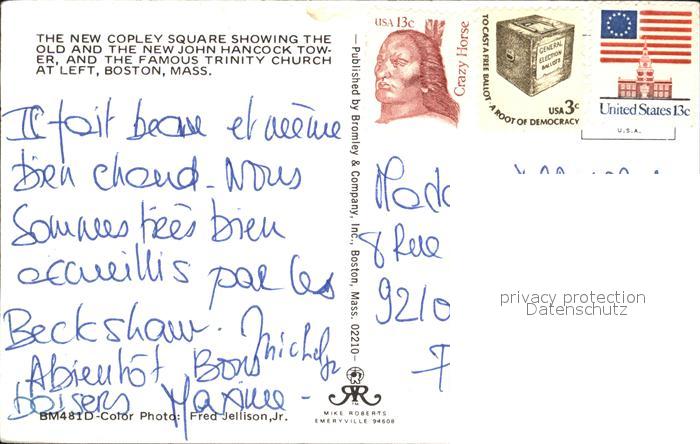 THE NEW COPLEY SQUARE SHOWING THE
OLD AND THE NEW JOHN HANCOCK TOW-
ER, AND THE FAMOUS TRINITY CHURCH
AT LEFT, BOSTON, MASS.
Il fait beau et même
bien chaud. Nous
Sommes très bien
accueillis par les
Beckshaw.
Michel
Abientôt Bons
baisers Maxime -
BM481D-Color Photo: Fred Jellison, Jr.
—Published by Bromley & Company, Inc., Boston, Mass. 02210—
MIKE ROBERTS
EMERYVILLE 94608
USA 13c
Crazy Horse
TO CAST A FREE BALLOT
A ROOT OF DEMOCRACY
GENERAL
ELECTION
BALLOTS
USA 3c
United States 13c
U.S.A.
Mada
8 Rue
9210
F
privacy protection
Datenschutz